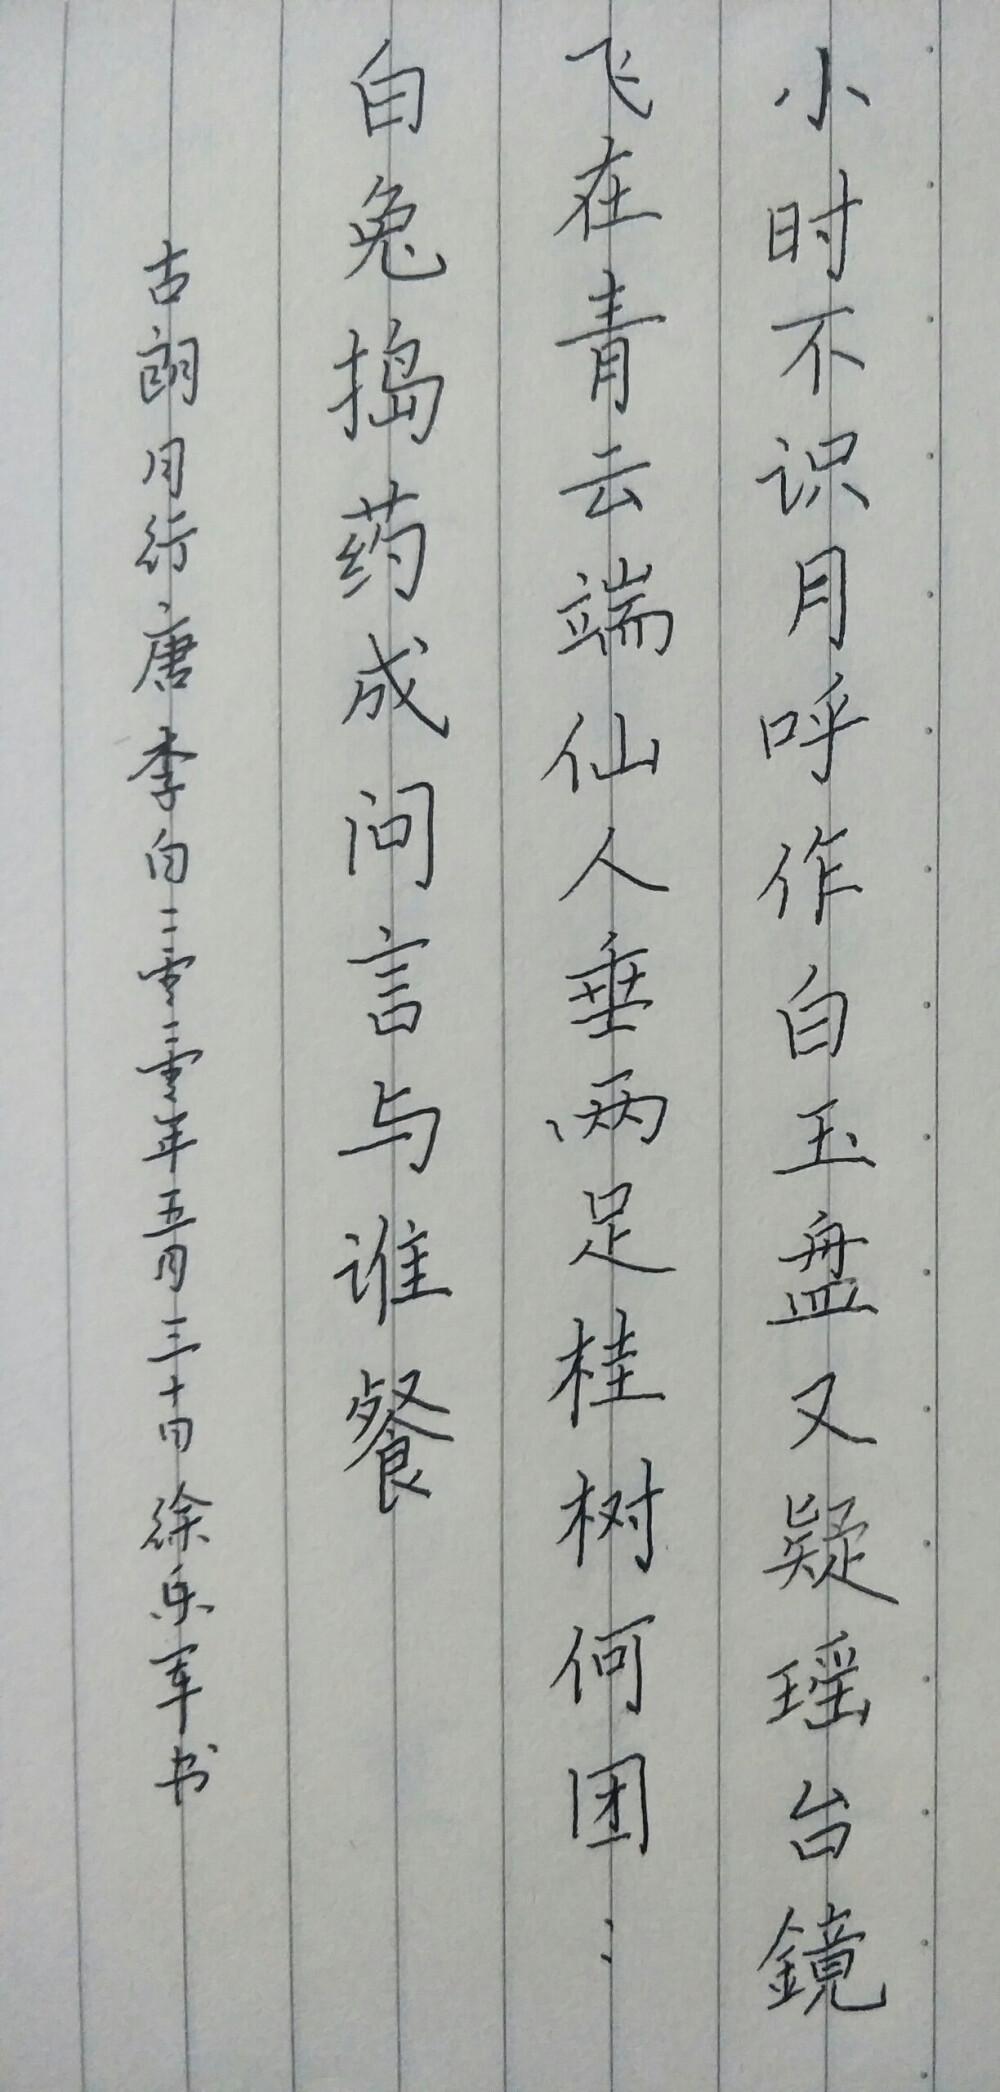 小时不识月呼作白玉盘又疑瑶台鏡
飞在青云端仙人垂两足桂树何团：
白兔捣药成问言与谁餐
古朗月行唐李白二零二零年五月三十日徐乐军书